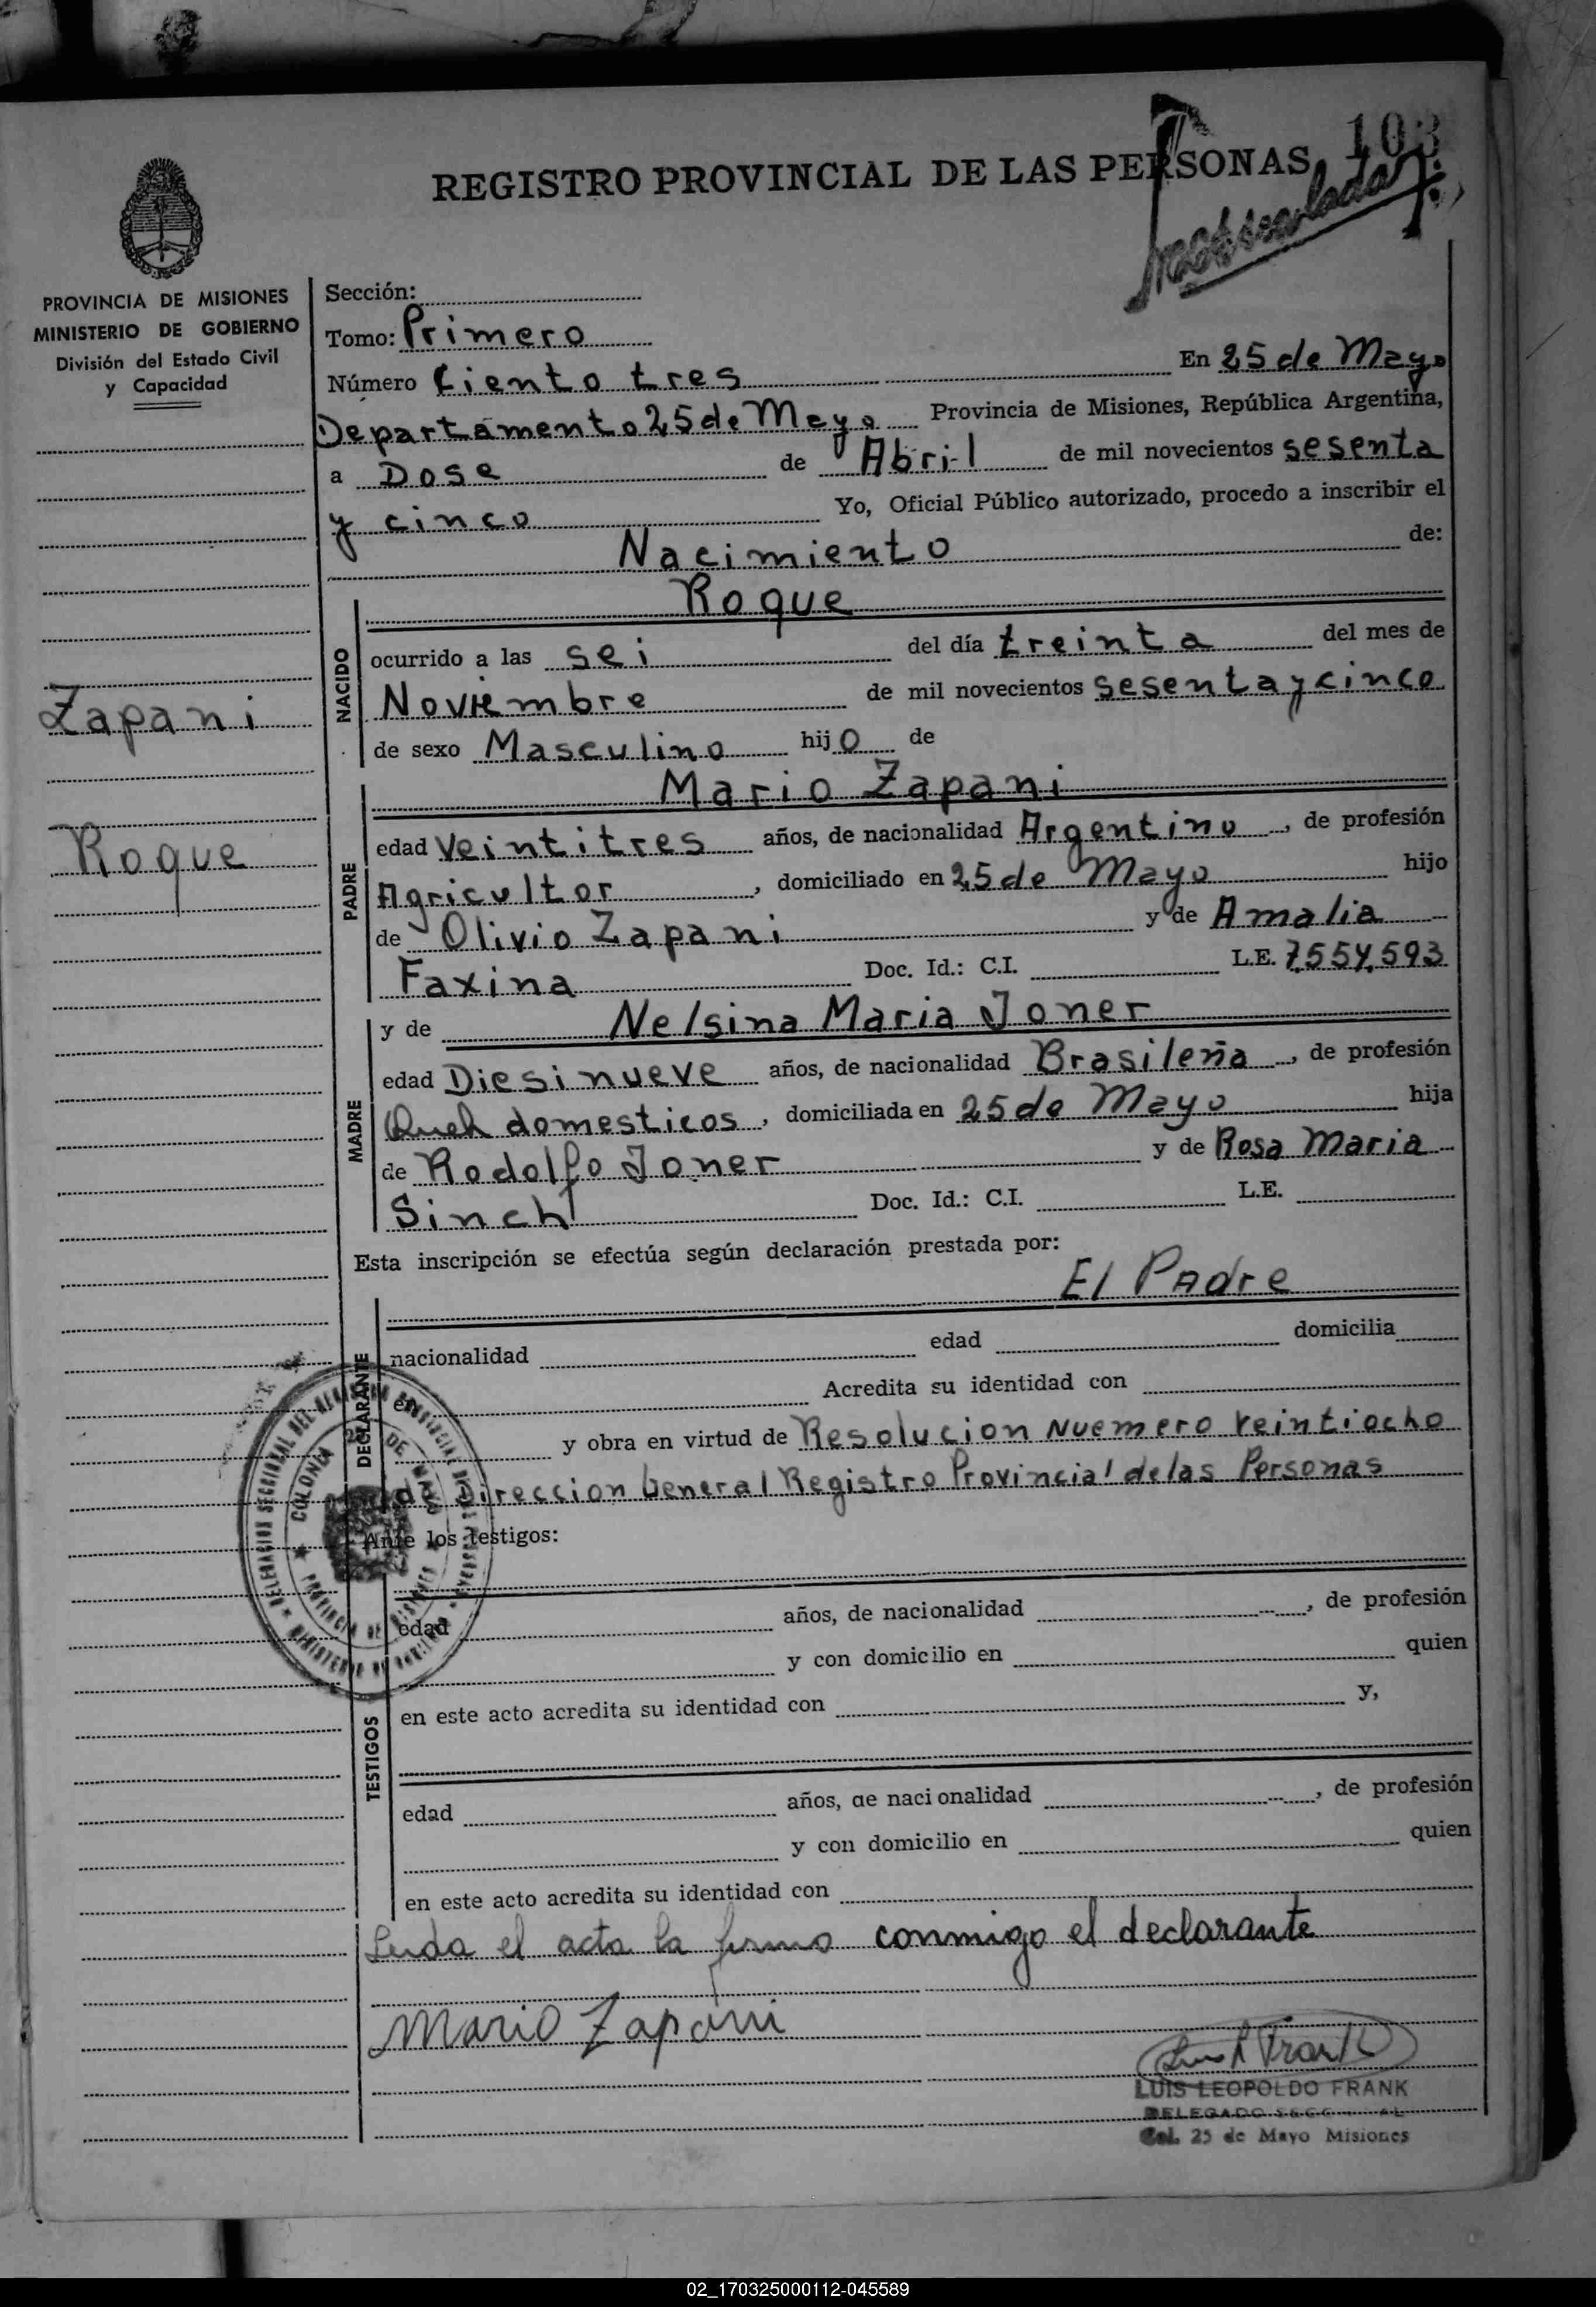 103
REGISTRO PROVINCIAL DE LAS PERSONAS
PROVINCIA DE MISIONES
MINISTERIO DE GOBIERNO
División del Estado Civil
y Capacidad
Zapani
Roque
Sección:
Tomo: Primero
Número Ciento tres En 25 de Mayo
Departamento 25 de Mayo Provincia de Misiones, República Argentina,
a Dose de Abril de mil novecientos sesenta
y cinco Yo, Oficial Público autorizado, procedo a inscribir el
Nacimiento de:
NACIDO
Roque
ocurrido a las sei del día treinta del mes de
Noviembre de mil novecientos sesenta y cinco
de sexo Masculino hijo de
PADRE
Mario Zapani
edad Veintitres años, de nacionalidad Argentino, de profesión
Agricultor, domiciliado en 25 de Mayo hijo
de Olivio Zapani y de Amalia
Faxina Doc. Id.: C.I. L.E. 7.554.593
MADRE
y de Nelsina Maria Joner
edad Diesinueve años, de nacionalidad Brasileña, de profesión
Queh domesticos, domiciliada en 25 de Mayo hija
de Rodolfo Joner y de Rosa Maria
Sinch Doc. Id.: C.I. L.E.
Esta inscripción se efectúa según declaración prestada por:
El Padre
DECLARANTE
nacionalidad edad domicilia
en Acredita su identidad con
y obra en virtud de Resolucion Nuemero veintiocho
de Direccion General Registro Provincial de las Personas
COLONIA 25 DE MAYO
PROVINCIA DE MISIONES
Ante los testigos:
TESTIGOS
edad años, de nacionalidad, de profesión
y con domicilio en quien
en este acto acredita su identidad con y,
edad años, de nacionalidad, de profesión
y con domicilio en quien
en este acto acredita su identidad con
Leida el acta la firma conmigo el declarante
Mario Zapani
LUIS LEOPOLDO FRANK
DELEGADO
Col. 25 de Mayo Misiones
02_170325000112-045589